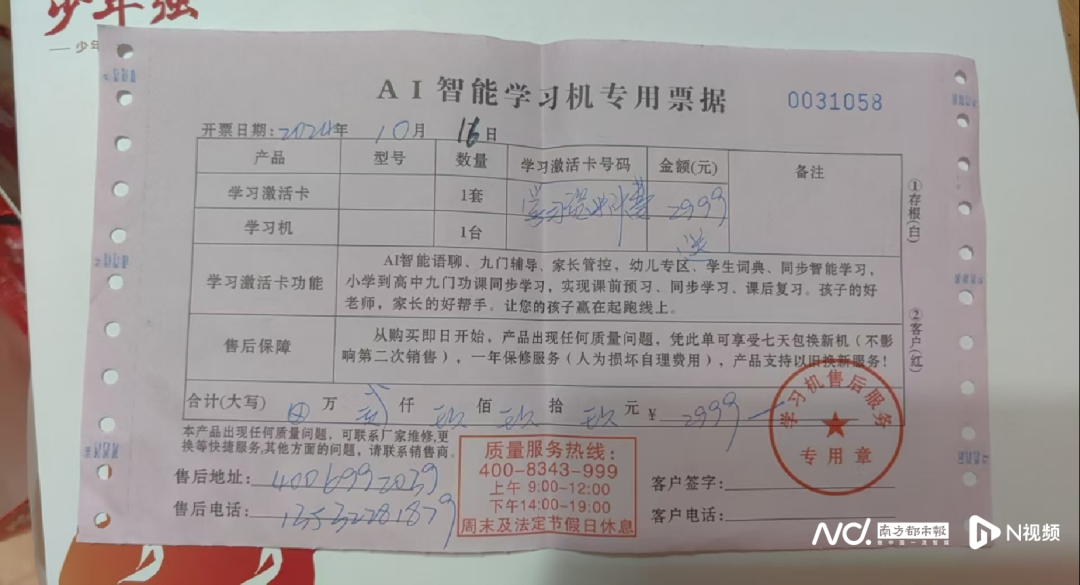 少年强
AI智能学习机专用票据 0031058
开票日期:2024年 10月 16日
产品 型号 数量 学习激活卡号码 金额(元) 备注
学习激活卡 1套 2999
学习机 1台 送
学习激活卡功能 AI智能语聊、九门辅导、家长管控，幼儿专区、学生词典、同步智能学习，
小学到高中九门功课同步学习，实现课前预习、同步学习、课后复习。孩子的好
老师，家长的好帮手。让您的孩子赢在起跑线上。
售后保障 从购买即日开始，产品出现任何质量问题，凭此单可享受七天包换新机（不影
响第二次销售），一年保修服务（人为损坏自理费用），产品支持以旧换新服务！
合计(大写) 万 仟 玖 佰 玖 拾 玖 元 ¥ 2999
本产品出现任何质量问题，可联系厂家维修,更
换等快捷服务,其他方面的问题，请联系销售商。
售后地址: 4006992039
售后电话: 13532281879
质量服务热线:
400-8343-999
上午 9:00-12:00
下午14:00-19:00
周末及法定节假日休息
客户签字:
客户电话:
学习机售后服务
专用章
①存根(白)
②客户(红)
N视频
南方都市报